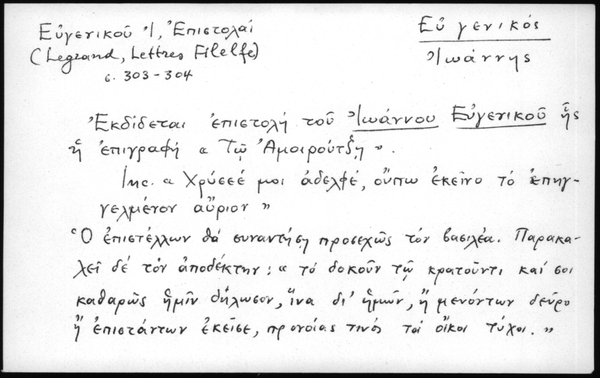 Εὐγενικοῦ Ἰ, Ἐπιστολαί
Εὐγενικός
(Legrand, Lettres Filelfe)
Ἰωάννης
σ. 303-304
Ἐκδίδεται ἐπιστολή τοῦ Ἰωάννου Εὐγενικοῦ ἧς
ἡ ἐπιγραφή « Τῷ Ἀμοιρούτζῃ ».
Inc. « Χρύσεέ μοι ἀδελφέ, οὔπω ἐκεῖνο τό ἐπηγ-
γελμένον αὔριον »
Ὁ ἐπιστέλλων θά συναντήσῃ προσεχῶς τόν βασιλέα. Παρακα-
λεῖ δέ τόν ἀποδέκτην: « τό δοκοῦν τῷ κρατοῦντι καί σοι
καθαρῶς ἡμῖν δήλωσον, ἵνα δι' ἡμῶν, ἤ μενόντων δεῦρο
ἤ ἐπιστάντων ἐκεῖσε, προνοίας τινός τά οἴκοι τύχοι. »